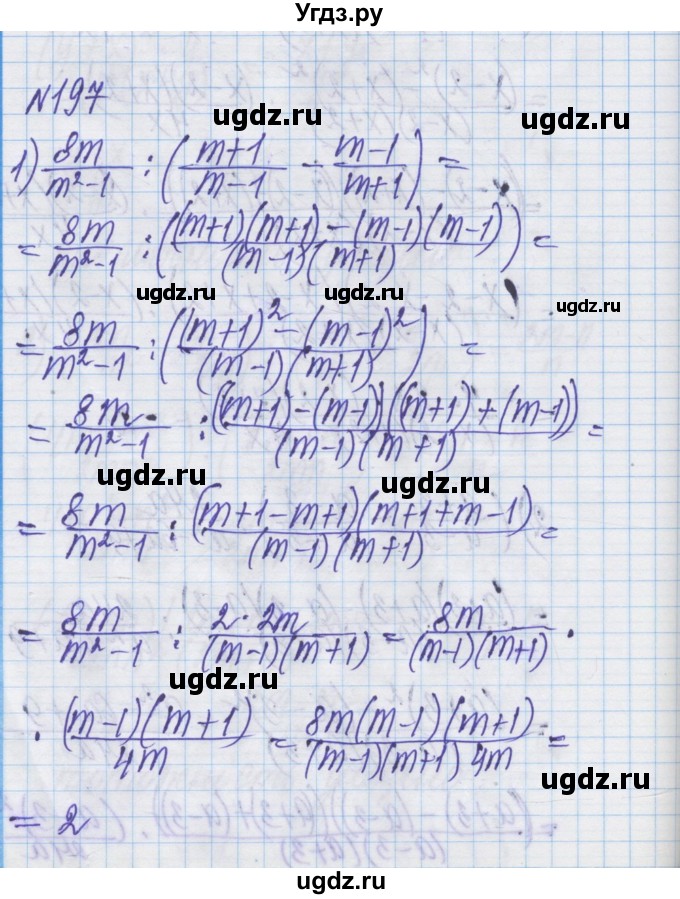 Угдз.ру
№197
ugdz.ru ugdz.ru
1) 8m/(m²-1) : ((m+1)/(m-1) - (m-1)/(m+1)) =
= 8m/(m²-1) : (((m+1)(m+1) - (m-1)(m-1))/((m-1)(m+1))) =
ugdz.ru ugdz.ru ugdz.ru
= 8m/(m²-1) : (((m+1)² - (m-1)²)/((m-1)(m+1))) =
ugdz.ru ugdz.ru
= 8m/(m²-1) : (((m+1)-(m-1))((m+1)+(m-1)))/((m-1)(m+1)) =
ugdz.ru ugdz.ru
= 8m/(m²-1) : ((m+1-m+1)(m+1+m-1))/((m-1)(m+1)) =
= 8m/(m²-1) : (2·2m)/((m-1)(m+1)) = 8m/((m-1)(m+1)) ·
ugdz.ru ugdz.ru
· ((m-1)(m+1))/4m = (8m(m-1)(m+1))/((m-1)(m+1)4m) =
ugdz.ru
= 2
ugdz.ru